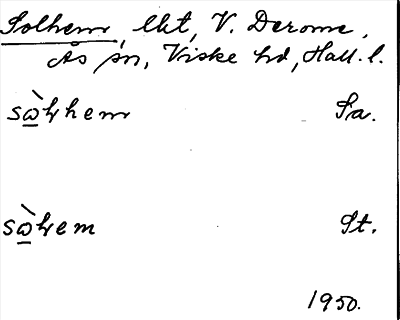 Solhem, lkt, V. Derome,
Ås sn, Viske hd, Hall. l.
sὼ̲ɫhem Sa.
sὼ̲ɫem St.
1950.